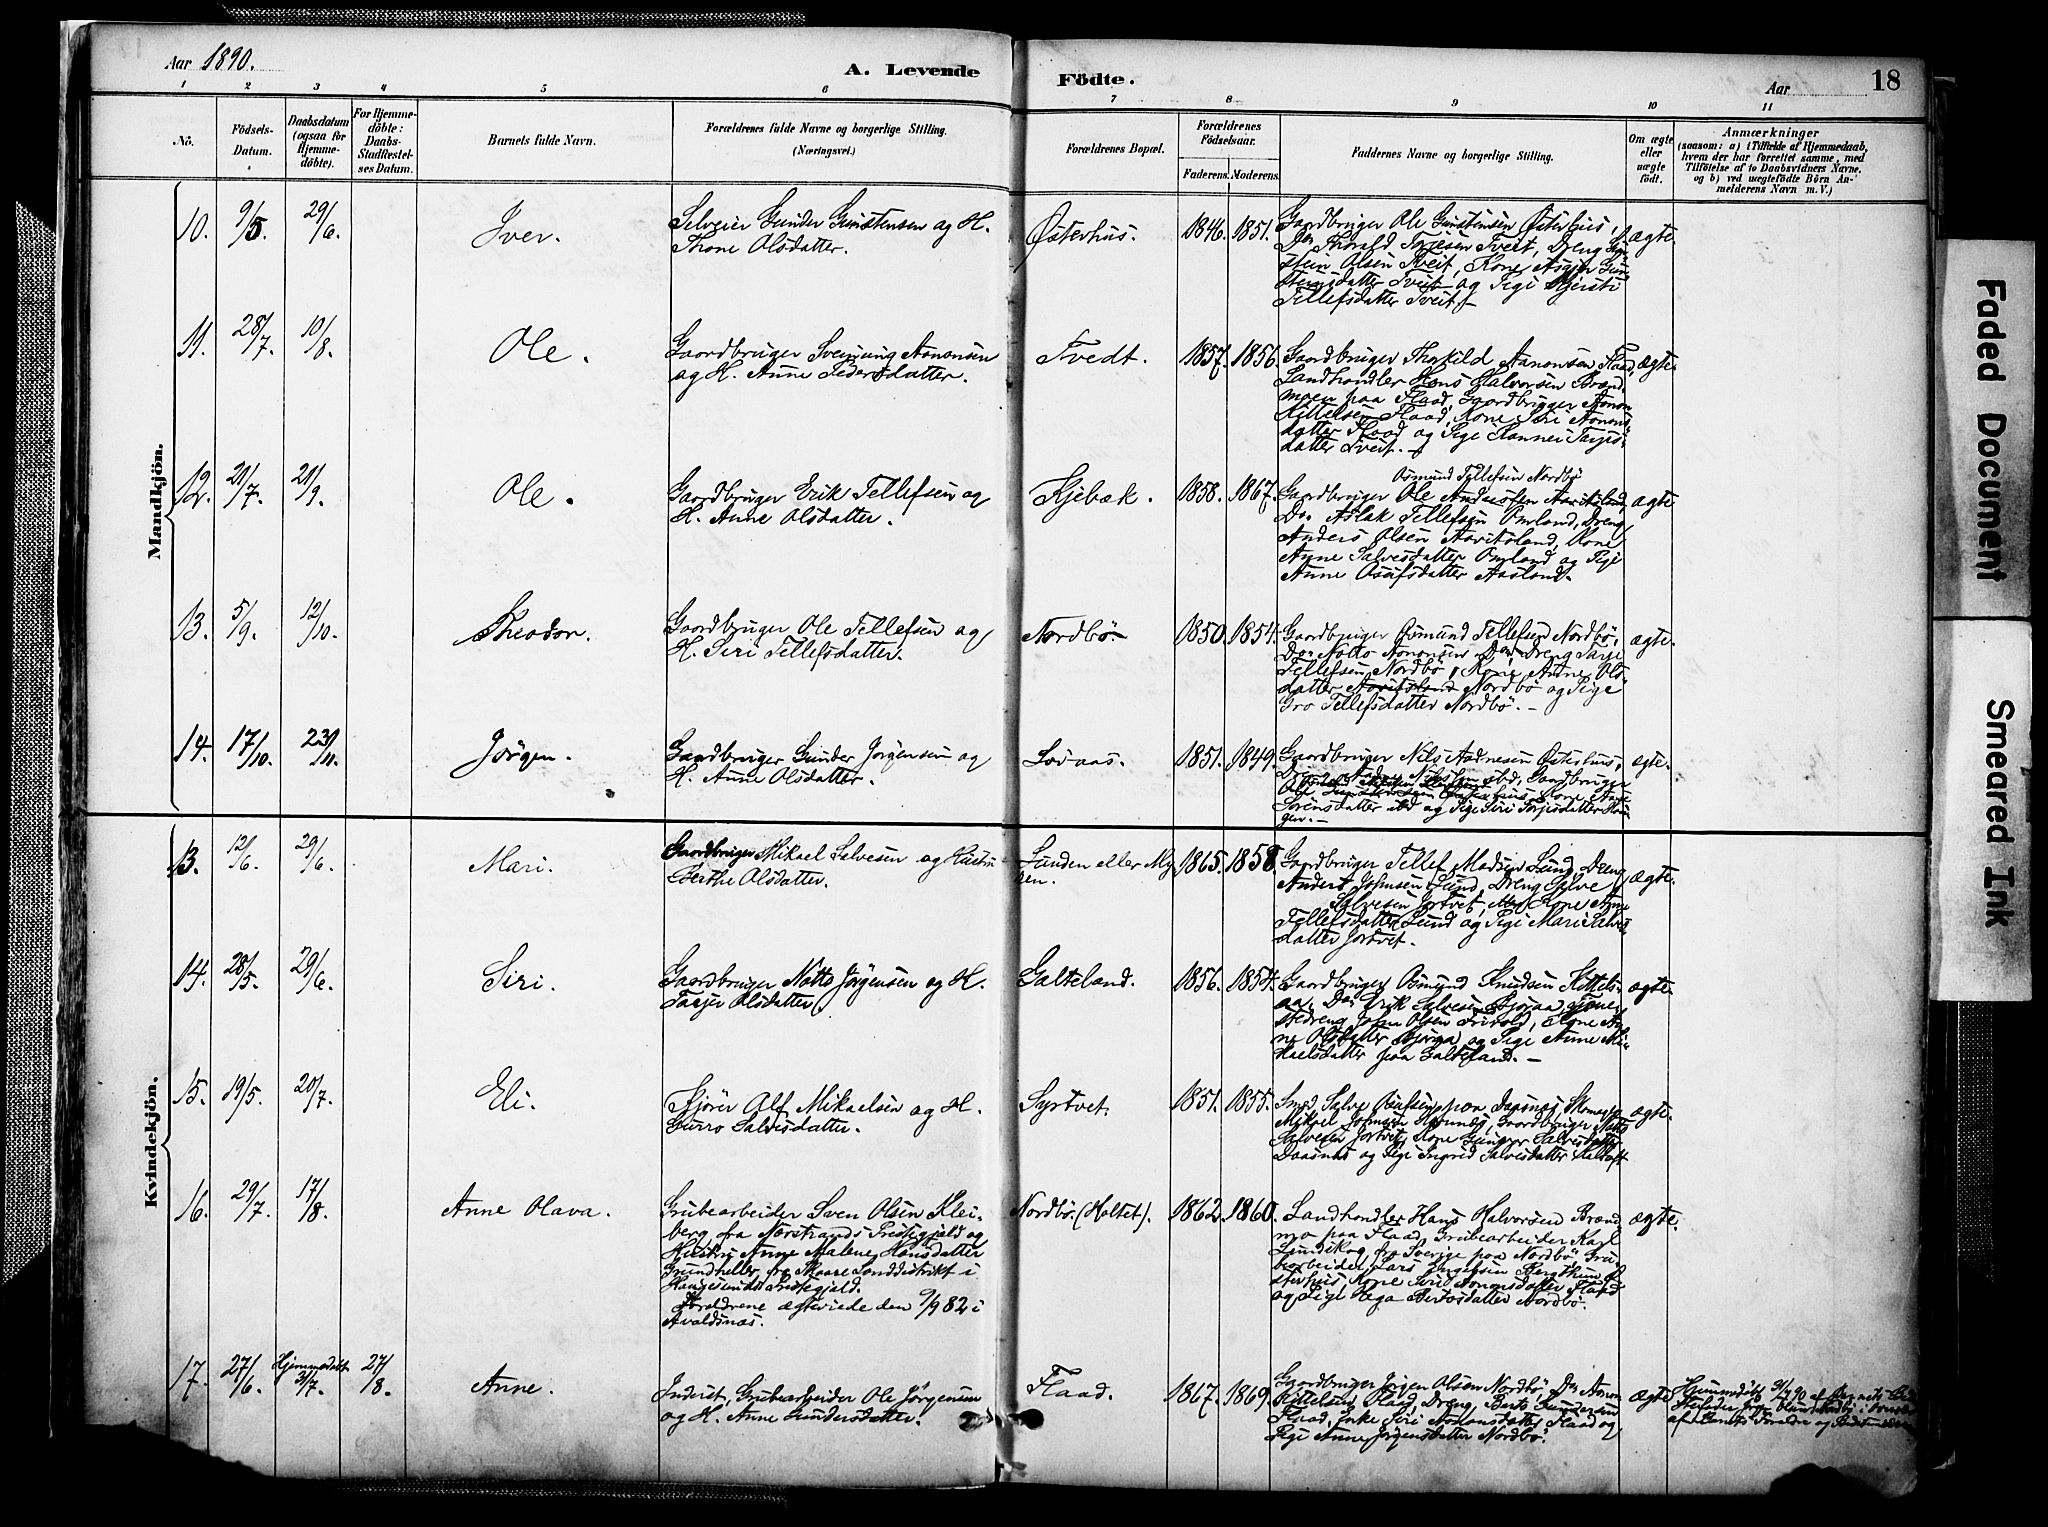 Aar 1890.
A. Levende
Födte.
Aar
18
1 2 3 4 5 6 7 8 9 10 11
No.
Födsels-
Datum.
Daabsdatum
(ogsaa for
Hjemme-
döbte).
For Hjemme-
döbte:
Daabs-
Stadfæstel-
ses Datum.
Barnets fulde Navn.
Forældrenes fulde Navne og borgerlige Stilling.
(Næringsvei.)
Forældrenes Bopæl.
Forældrenes
Födselsaar.
Faderens. Moderens.
Faddernes Navne og borgerlige Stilling.
Om ægte
eller
uægte
födt.
Anmærkninger
(saasom: a) i Tilfælde af Hjemmedaab,
hvem der har forrettet samme, med
Tilföielse af to Daabsvidners Navne,
og b) ved uægtefödte Börn An-
melderens Navn m. V.)
Mandkjön.
10. 9/5. 29/6. Iver.
Selveier Gunder Gunstensen og H.
Thone Olsdatter.
Østerhus. 1846. 1851.
Gaardbruger Ole Gunstensen Østerhus,
Do Thorald Terjesen Tveit, Dreng Gun-
stein Olsen Tveit, Kone Asgjer Gun-
stensdatter Tveit og Pige Kjersti
Tellefsdatter Tveit.
ægte.
11. 28/7. 10/8. Ole.
Gaardbruger Sveinung Aanonsen
og H. Anne Pedersdatter.
Tvedt. 1857. 1856.
Gaardbruger Thorkild Aanonsen Flaad,
Landhandler Hans Halvorsen Brænd-
moen paa Flaad, Gaardbruger Aanon
Kittelsen Flaad, Kone Siri Aanons-
datter Flaad og Pige Tarjes-
datter Tveit.
ægte.
12. 21/7. 21/9. Ole.
Gaardbruger Erik Tellefsen og
H. Anne Olsdatter.
Kjebæk. 1858. 1867.
Osmund Tellefsen Nordbö
Gaardbruger Ole Andersen Aavitsland,
Do Aslak Tellefsen Omland, Dreng
Anders Olsen Aavitsland, Kone
Anne Salvesdatter Omland og Pige
Anne Osulfsdatter Aasland.
ægte
13. 5/9. 12/10. Theodor.
Gaardbruger Ole Tellefsen og
H. Siri Tellefsdatter.
Nordbö 1850. 1854.
Gaardbruger Osmund Tellefsen Nordbö,
Do Notto Aanonsen Do, Dreng Tarje
Tellefsen Nordbö, Kone Anne Ols-
datter Aavitsland Nordbö og Pige
Gro Tellefsdatter Nordbö.
ægte.
14. 17/10. 23/11. Jörgen.
Gaardbruger Gunder Jörgensen og
H. Anne Olsdatter.
Lövaas. 1851. 1849.
Gaardbruger Nils Aadnesen Østerhus,
Nilssen ibd, Gaardbruger
Ole Gunstensen Østerhus, Kone Anne
Sörensdatter ibd og Pige Siri Terjesdatter
ægte.
Kvindekjön.
13. 12/6. 29/6. Mari.
Gaardbruger Mikael Salvesen og Hustru
Berthe Olsdatter.
Lunden eller My-
ren. 1865. 1858.
Gaardbruger Tellef Madsen Lund, Dreng
Anders Johnsen Lund, Dreng Salve
Salvesen Jortvet, Kone Anne
Tellefsdatter Lund og Pige Mari Salves-
datter Jortvet.
ægte.
14. 28/5. 29/6. Siri.
Gaardbruger Notto Jörgensen og H.
Tarjer Olsdatter.
Galteland. 1856. 1854.
Gaardbruger Osmund Knudsen Kittels-
aa, Do Erik Salvesen Bjoraa, Tjene-
stedreng John Olsen Frivold, Kone An-
ne Olsdatter Bjoraa og Pige Anne Mi-
kaelsdatter paa Galteland.
ægte.
15. 19/5. 20/7. Eli.
Kjörer Olf Mikaelsen og H.
Gurro Salvesdatter.
Syrtvet. 1851. 1855.
Smed Salve paa Daasnæs, Skomager
Mikael Johnsen, Gaardbruger Notto
Salvesen Jortvet, Kone Gunvor Salvesdatter
Daasnæs og Pige Ingrid Salvesdatter
ægte.
16. 29/7. 17/8. Anne Olava.
Grubearbeider Sven Olsen Klei-
berg fra Nærstrands Præstegjeld og
Hustru Anne Malene Hansdatter
Grundheller fra Skaare Landdistrikt i
Haugesunds Præstegjeld.
Forældrene ægteviede den 9/9 82 i
Avaldsnæs.
Nordbö. (Holtet). 1862. 1860.
Landhandler Hans Halvorsen Brænd-
mo paa Flaad, Grubearbeider Karl
Lundskog fra Sverige paa Nordbö, Gru-
bearbeider Lars Ingelsen
Østerhus, Kone Siri Aanonsdatter Flaad
og Pige Aga Bertosdatter Nordbö.
ægte.
17. 27/6. Hjemmedöbt 3/7. 27/8. Anne.
Inderst, Grubearbeider Ole Jörgensen
og H. Anne Gundersdatter.
Flaad. 1867. 1869.
Gaardbruger Jörgen Olsen Nordbö, Do Aanon
Kittelsen Flaad, Dreng Berte Gundersen
Flaad, Enke Siri Aanonsdatter Flaad og
Pige Anne Jörgensdatter Nordbö.
ægte
Hjemmedöbt 3/7 90 af Barnets
Jörgen Olsen Nordbö i
af Barnets Forældre og
Faded Document
Smeared Ink